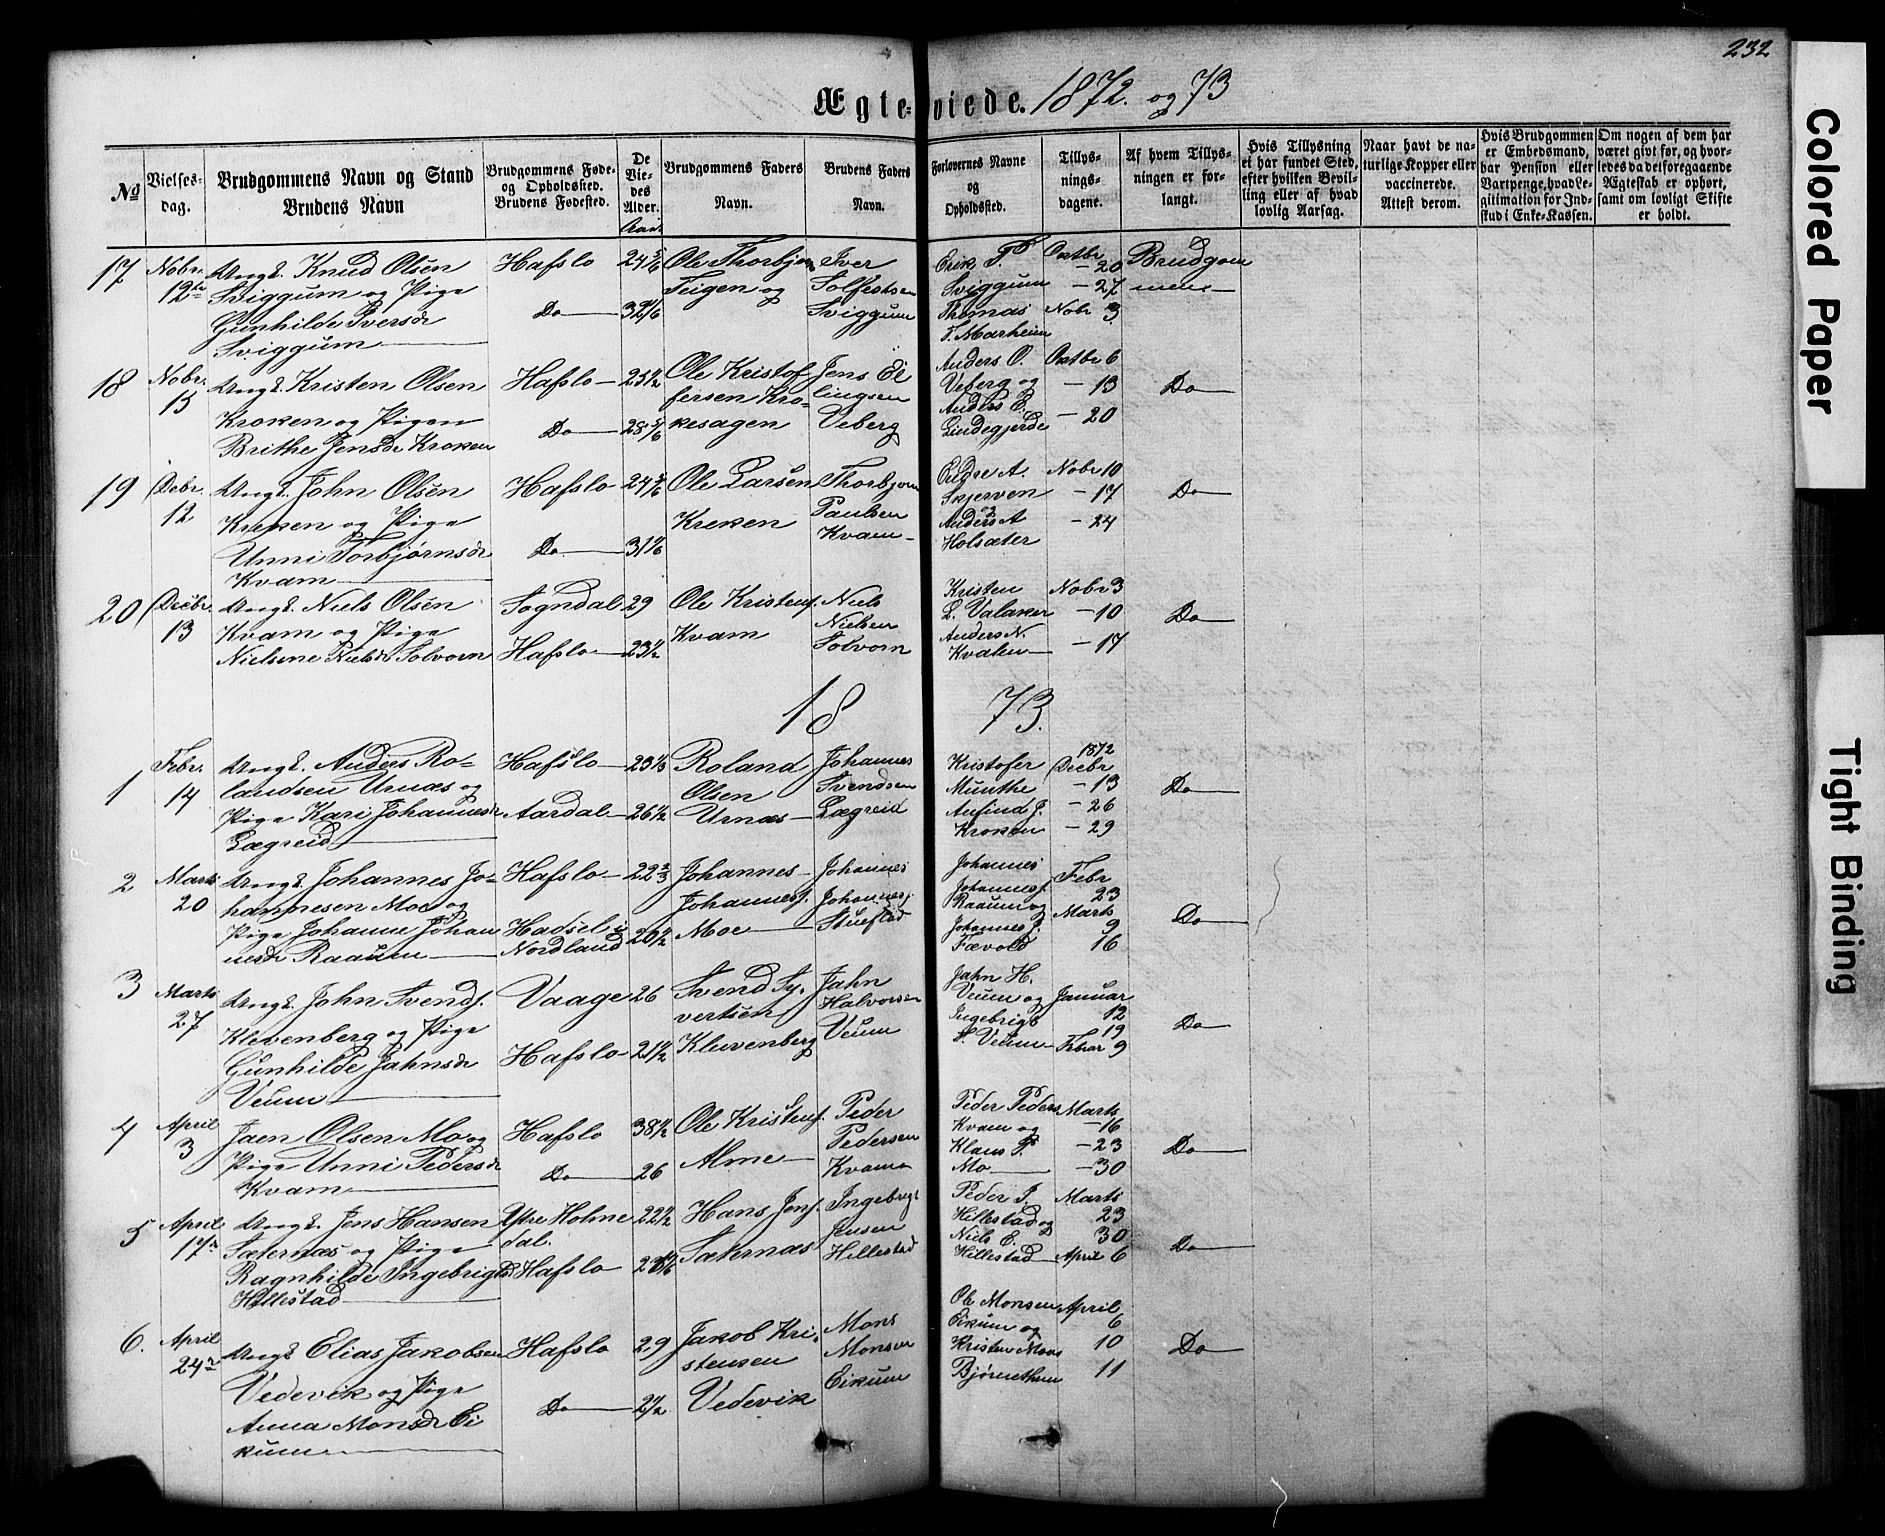 232
Ægteviede. 1872. og 73
No
Vielsesdag.
Brudgommens Navn og Stand
Brudens Navn
Brudgommens Føde- og Opholdssted.
Brudens Fødested.
De Viedes Alder.
Aar
Brudgommens Faders Navn.
Brudens Faders Navn.
Forlovernes Navne og Opholdssted.
Tillysningsdagene.
Af hvem Tillysningen er forlangt.
Hvis Tillysning ei har fundet Sted, efter hvilken Bevilling eller af hvad lovlig Aarsag.
Naar havt de naturlige Kopper eller vaccinerede. Attest derom.
Hvis Brudgommen er Embedsmand, har Pension eller Vartpenge, hvad Legitimation for Indskud i Enke-Kassen.
Om nogen af dem har været givt før, og hvorledes da det foregaaende Ægteskab er ophørt, samt om lovligt Skifte er holdt.
17 Nobr. 12te Ungk. Knud Olsen Hafslo 24 5/6 Ole Thorbjørn Iver Erik T. Octbr Brudgom
Sviggum og Pige Teigen og Solfestsen Sviggum — 20 — 27 mene
Gunhilde Iversdr Do 32 1/6 Sviggum Thomas Nobr 3
Sviggum T. Marheim
18 Nobr. 15 Ungk. Kristen Olsen Hafslo 25 1/2 Ole Kristof Jens El Anders O. Octbr 6
Kroken og Pigen fersen Kro- lingsen Veberg og — 13 Do
Brithe Jensdr Kroken Do 28 5/6 kesagen Veberg Anders E. — 20
Lindegjerde
19 Debr. 12 Ungk. John Olsen Hafslo 24 5/6 Ole Larsen Thorbjørn A. Nobr 10
Kreken og Pige Kreken Paulsen Skjerven — 17 Do
Unni Torbjørnsdr Do 31 1/6 Kvam Anders A — 24
Kvam Holsæter
20 Decbr. 13 Ungk. Niels Olsen Sogndal 29 Ole Kristens. Niels Kristen Nobr 3
Kvam og Pige Kvam Nielsen L. Valaker — 10 Do
Nielsine Nielsdr Solvorn Hafslo 23 1/2 Solvorn Anders N. Kvalen — 17
1873.
1 Febr. 14 Ungk. Anders Ro- Hafslo 23 1/3 Roland Johannes Kristofer 1872 Decbr
landsen Urnæs og Olsen Svendsen Munthe — 13 Do
Pige Kari Johannesdr Aardal 26 1/2 Urnæs Lægreid Anfind J. — 26
Lægreid Kroken — 29
2 Marts 20 Ungk. Johannes Jo- Hafslo 22 2/3 Johannes Johannes Johannes Febr
hannesen Moe og Johanness. Johanness. Johanness. 23
Pige Johanne Johan Hadsel i 20 1/2 Moe Raaum og Marts 9 Do
nesdr Raaum Nordland Johannes J. Fævold 16
3 Marts 27 Ungk. John Svends. Vaage 26 Svend Sy- Jahn Jahn H.
Klevenberg og Pige vertsen Halvorsen Veum og Januar 12
Gunhilde Jahnsdr Hafslo 21 1/2 Kluvenberg Veum Ingebrigt 19 Do
Veum Veum Febrar 9
4 April 3 Jaen Olsen Mo og Hafslo 38 1/2 Ole Kristens. Peder Peder Peders Marts
Pige Unni Pedersdr Do 26 Alme Pedersen Kvam og — 16
Kvam Kvam Klaus P. — 23 Do
Mo — 30
5 April 17de Ungk. Jens Hansen Ytre Holme 22 1/2 Hans Jens. Ingebrigt Peder J. Marts
Sæternæs og Pige dal. Sæternæs Jensen Hillestad og 23
Ragnhilde Ingebrigtsd Hafslo Hillestad Niels E. 30 Do
Hillestad Hillestad April 6
6. April 24de Ungk Elias Jakobsen Hafslo 29 Jakob Kri- Mons Ole Monsen April
Vedevik og Pige stensen Monsen Eikum og 6
Anna Monsdr Ei Do Vedevik Eikum Kristen Mons 10 Do
kum Bjørnethun 11
Colored Paper
Tight Binding